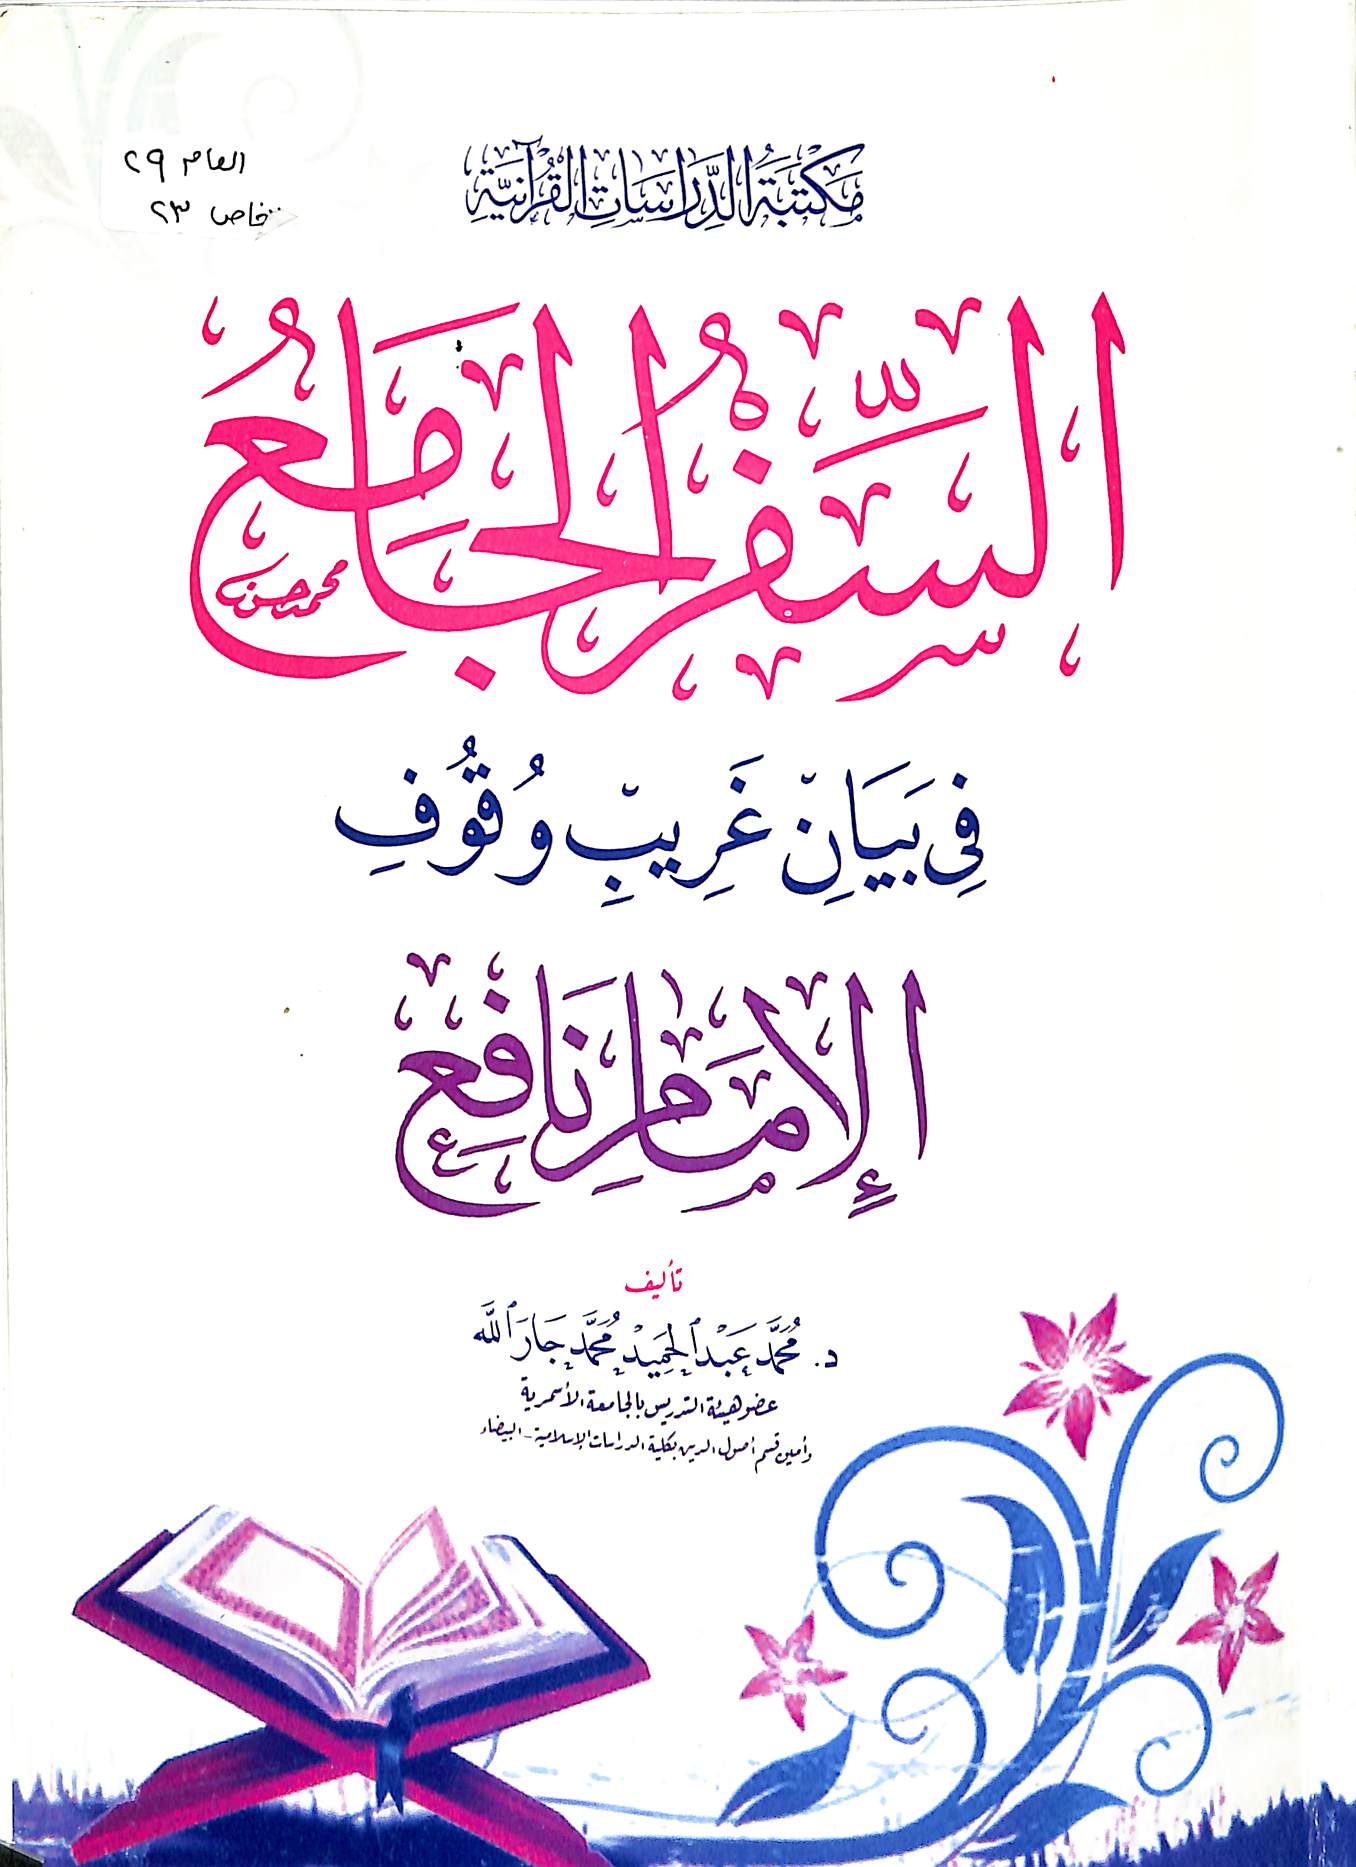 العام ٢٩
خاص ٢٣
مَكتبَةُ الدِّرَاسَاتِ القُرآنيَّةِ
السِّفْرُ الجَامِعُ
محمد حسن
فِي بَيَانِ غَرِيبِ وُقُوفِ
الإِمَامِ نَافِعٍ
تأليف
د. مُحَمَّد عَبْد الحَمِيْد مُحَمَّد جَارَ اللَّه
عضو هيئة التدريس بالجامعة الأسمرية
وأمين قسم أصول الدين بكلية الدراسات الإسلامية - البيضاء